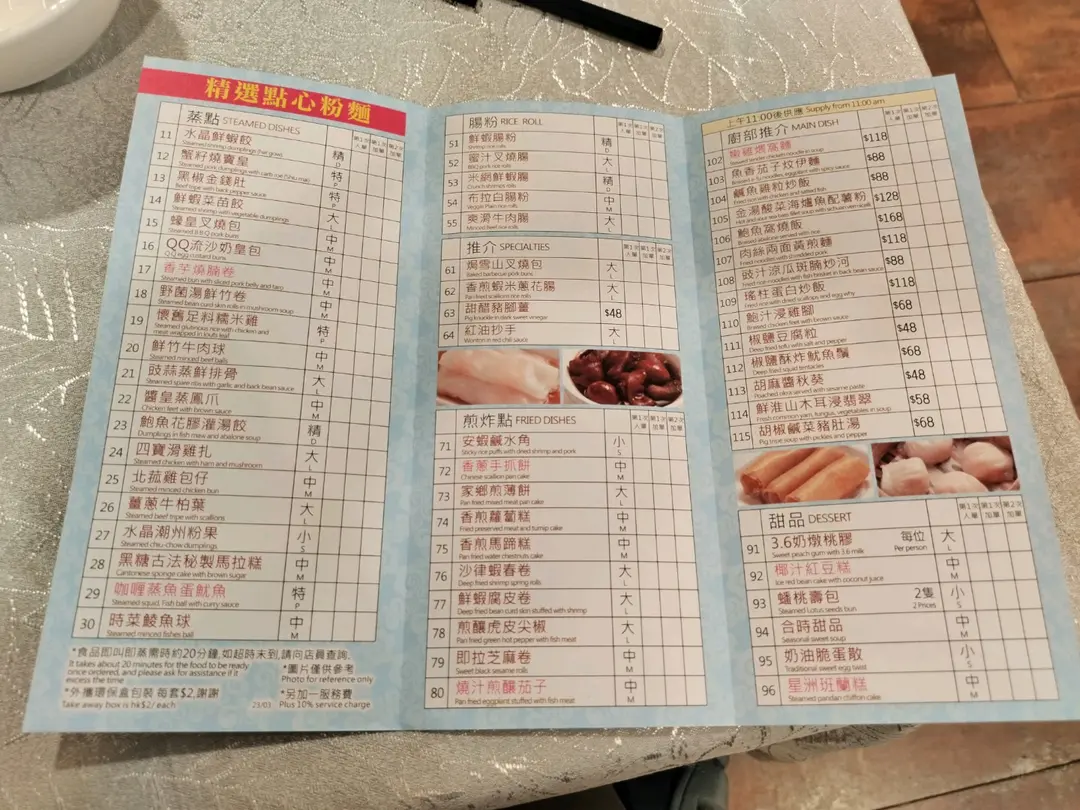 精選點心粉麵
蒸點 STEAMED DISHES
第1次 第1次 第2次
人單 加單 加單
11 水晶鮮蝦餃 精 D
Steamed shrimp dumplings (har gow)
12 蟹籽燒賣皇 特 P
13 黑椒金錢肚 特 P
Beef tripe with back pepper sauce
14 鮮蝦菜苗餃 大 L
Steamed shrimp with vegetable dumplings
15 蠔皇叉燒包 中 M
Steamed B.B.Q pork buns
16 QQ流沙奶皇包 中 M
QQ egg custard buns
17 香芋燒腩卷 中 M
Steamed bun with sliced pork belly and taro
18 野菌湯鮮竹卷 中 M
Steamed bean curd skin rolls in mushroom soup
19 懷舊足料糯米雞 特 P
Steamed glutinous rice with chicken and
meat wrapped in louts leaf
20 鮮竹牛肉球 中 M
Steamed minced beef balls
21 豉蒜蒸鮮排骨 大 L
Steamed spare ribs with garlic and back bean sauce
22 醬皇蒸鳳爪 中 M
Chicken feet with brown sauce
23 鮑魚花膠灌湯餃 精 D
Dumplings in fish maw and abalone soup
24 四寶滑雞扎 大 L
Steamed chicken with ham and mushroom
25 北菰雞包仔 中 M
Steamed minced chicken bun
26 薑蔥牛柏葉 大 L
Steamed beef tripe with scallions
27 水晶潮州粉果 小 S
Steamed chiu-chow dumplings
28 黑糖古法秘製馬拉糕 中 M
Cantonese sponge cake with brown sugar
29 咖喱蒸魚蛋魷魚 特 P
Steamed squid. Fish ball with curry sauce
30 時菜鯪魚球 中 M
Steamed minced fishes ball
*食品即叫即蒸需時約20分鐘,如超時未到,請向店員查詢.
It takes about 20 minutes for the food to be ready
once ordered, and please ask for assistance if it
excess the time
*圖片僅供參考
Photo for reference only
*外攜環保盒包裝 每套$2,謝謝
Take away box is hk$2/ each
23/03
*另加一服務費
Plus 10% service charge
腸粉 RICE ROLL
第1次 第1次 第2次
人單 加單 加單
51 鮮蝦腸粉 精 D
Shrimp rice rolls
52 蜜汁叉燒腸 大 L
BBQ pork rice rolls
53 米網鮮蝦腸 精 D
Crunch shrimps roll
54 布拉白腸粉 中 M
Veggie Plain rice rolls
55 爽滑牛肉腸 大 L
Minced beef rice rolls
推介 SPECIALTIES
第1次 第1次 第2次
人單 加單 加單
61 焗雪山叉燒包 大 L
Baked barbecue pork buns
62 香煎蝦米蔥花腸 大 L
Pan fried scallions rice rolls
63 甜醋豬腳薑 $48
Pig knuckle in dark sweet vinegar
64 紅油抄手 大 L
Wonton in red chili sauce
煎炸點 FRIED DISHES
第1次 第1次 第2次
人單 加單 加單
71 安蝦鹹水角 小 S
Sticky rice puffs with dried shrimp and pork
72 香蔥手抓餅 中 M
Chinese scallion pan cake
73 家鄉煎薄餅 大 L
Pan fried mixed meat pan cake
74 香煎蘿蔔糕 中 M
Fried preserved meat and turnip cake
75 香煎馬蹄糕 中 M
Pan fried water chestnuts cake
76 沙律蝦春卷 大 L
Deep fried shrimp spring rolls
77 鮮蝦腐皮卷 大 L
Deep fried bean curd skin stuffed with shrimp
78 煎釀虎皮尖椒 大 L
Pan fried green hot pepper with fish meat
79 即拉芝麻卷 中 M
Sweet black sesame rolls
80 燒汁煎釀茄子 中 M
Pan fried eggplant stuffed with fish meat
上午11:00後供應 Supply from 11:00 am
廚部推介 MAIN DISH
第1次 第1次 第2次
人單 加單 加單
102 $118
103 魚香茄子炆伊麵 $88
104 鹹魚雞粒炒飯 $88
Fried rice with chicken and salted fish
105 金湯酸菜海爐魚配薯粉 $128
106 鮑魚窩燒飯 $168
107 肉絲兩面黃煎麵 $118
Fried noodles with shredded pork
108 豉汁涼瓜斑腩炒河 $88
109 瑤柱蛋白炒飯 $118
110 鮑汁浸雞腳 $68
Braised chicken feet with brown sauce
111 椒鹽豆腐粒 $48
Deep fried tofu with salt and pepper
112 椒鹽酥炸魷魚鬚 $68
Deep fried squid tentacles
113 胡麻醬秋葵 $48
Poached okra served with sesame paste
114 鮮淮山木耳浸翡翠 $58
Fresh common yam, fungus, vegetables in soup
115 胡椒鹹菜豬肚湯 $68
Pig tripe soup with pickles and pepper
甜品 DESSERT
第1次 第1次 第2次
人單 加單 加單
91 3.6奶燉桃膠 每位 大 L
Sweet peach gum with 3.6 milk Per person
92 椰汁紅豆糕 中 M
Ice red bean cake with coconut juice
93 蟠桃壽包 2隻 小 S
Steamed Lotus seeds bun 2 Prices
94 合時甜品 中 M
Seasonal sweet soup
95 奶油脆蛋散 小 S
Traditional sweet egg twist
96 星洲班蘭糕 中 M
Steamed pandan chiffon cake